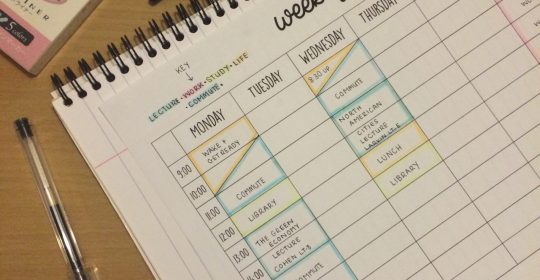 LINER
5 colors
week
KEY
LECTURE · WORK · STUDY · LIFE
· COMMUTE ·
MONDAY
TUESDAY
WEDNESDAY
THURSDAY
9:00
10:00
11:00
12:00
13:00
WAKE +
GET READY
COMMUTE
LIBRARY
THE GREEN
ECONOMY
LECTURE
COHEN LT·B
COMMUTE
8:30 UP
COMMUTE
NORTH
AMERICAN
CITIES
LECTURE
LARKIN LT·E
LUNCH
LIBRARY